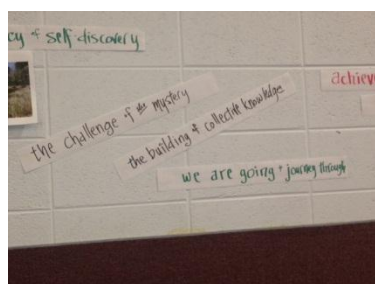 cy & self-discovery
achiev
the challenge of the mystery
the building of collective knowledge
we are going + journey through